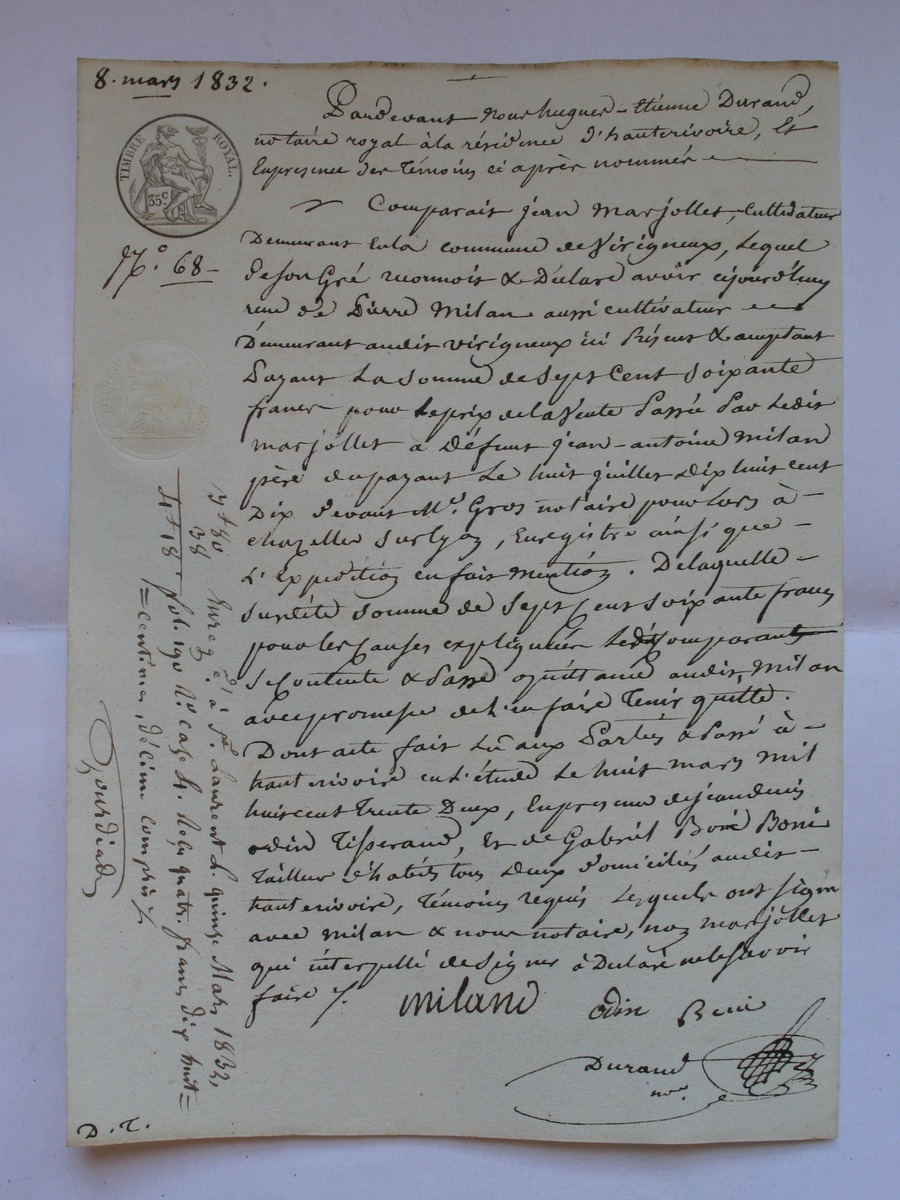 8. mars 1832.
TIMBRE ROYAL.
35 c
N.º 68
Pardevant Nous hugues-Etienne Durand,
notaire royal à la résidence d'hauterivoire, Et
Enpresence des Témoins ci après nommés
Comparait jean Marjollet, Cultivateur
Demeurant Enla commune de Virigneux, Lequel
de son Gré reconnoit & Déclare avoir cejourd'huy
reçu de Pierre Milan aussi cultivateur
Demeurant audit virigneux ici Présent & acceptant
Payant La Somme de Sept Cent Soixante
francs pour Le prix de la Vente Passée Par Ledit
marjollet à défunt jean-antoine Milan
père du payant Le huit juillet dix huit cent
Dix devant Me. Gros notaire pour Lors à
chazelles Sur Lyon, Enregistré ainsi que
L'Expédition en fait Mention. De laquelle
Surdite Somme de Sept Cent Soixante francs
pour les Causes expliquées Ledit Comparant
Se Contente & Passe quittance audit Milan
avec promesse de L'en faire Tenir quitte.
Dont acte fait Lû aux Parties & Passé à
hauterivoire en L'étude Le huit mars mil
huit cent Trente Deux, Enpresence de jean denis
odin Tisserand, Et de Gabriel Boni Boni
Tailleur d'habits tous Deux domiciliés audit
hauterivoire, Témoins requis Lesquels ont signé
avec milan & nous notaire, non marjollet
qui interpellé de Signer à Déclaré ne le Savoir
faire
miland odin Boni
Durand
nre.
D. T.
3 + 80
38
4 + 18
Enreg.é à St. Laurent L. quinze Mars 1832,
fol. 190 Rº. case 4. Reçu quatr. francs dix huit=
=centimes, décime compris
Gourdiad